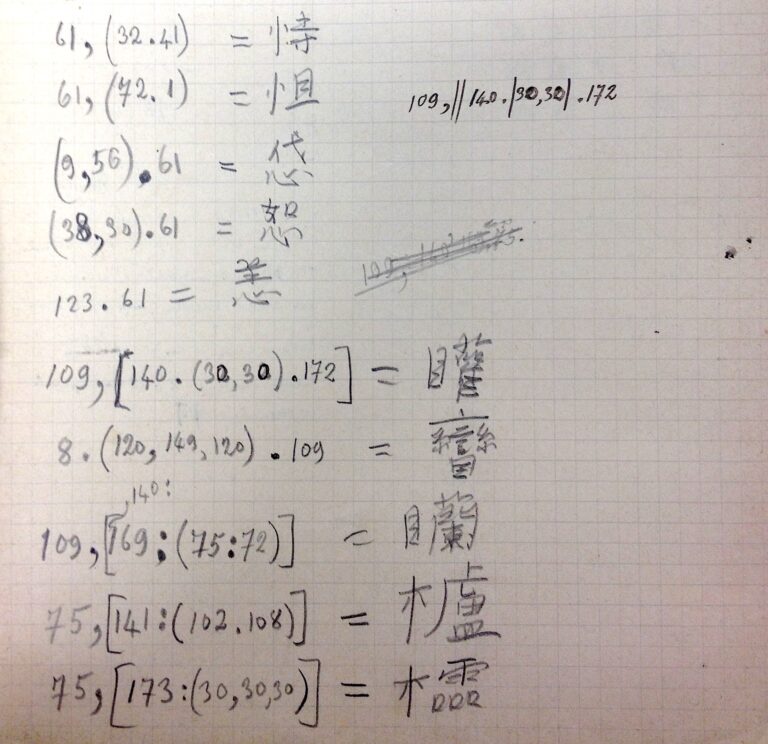 61,(32.41) = 恃
61,(72.1) = 怛
109,||140.|30,30|.172
(9,56).61 =
(38,30).61 = 恕
123.61 = 恙
109,[140.(30,30).172] = 矔
8.(120,149,120).109 =
,140:
109,[169;(75:72)] =
75,[141:(102.108)] = 櫨
75,[173:(30,30,30)] = 櫺